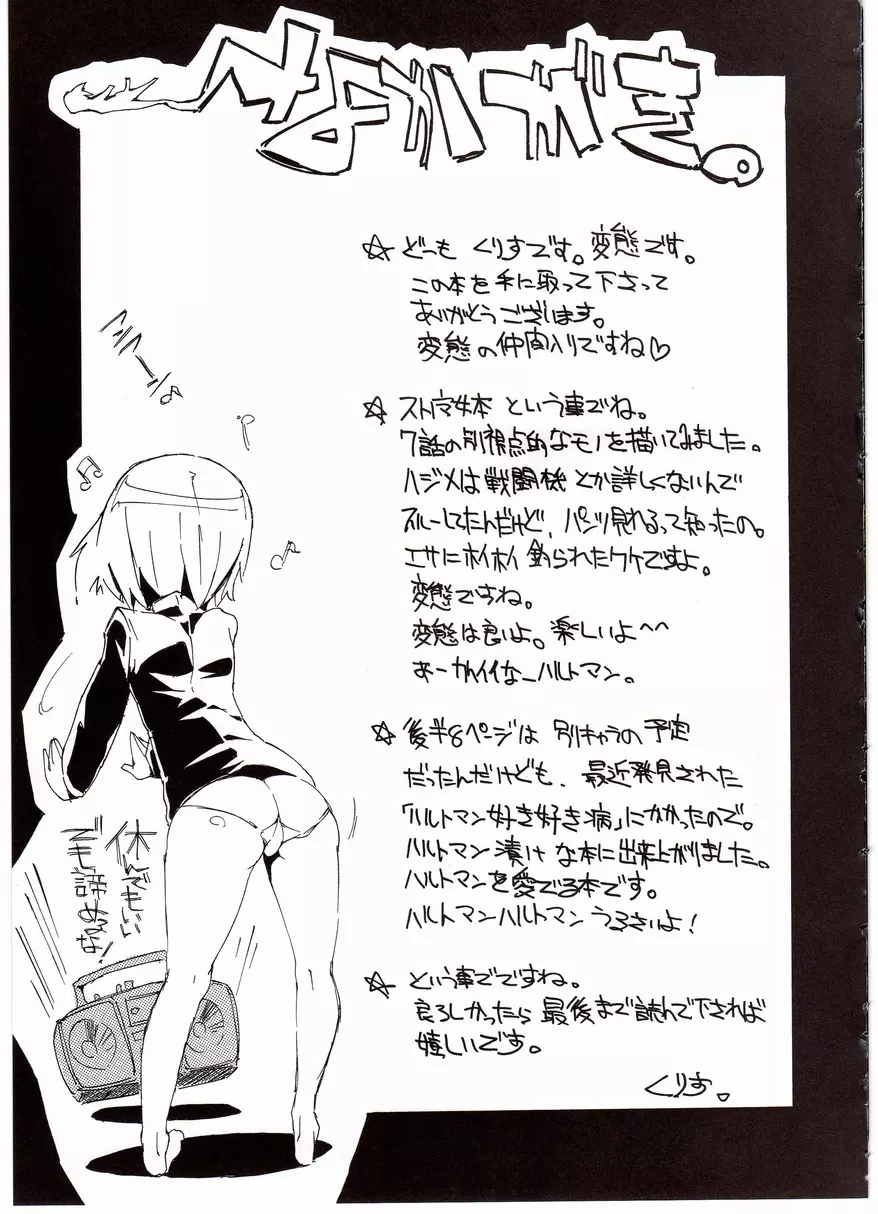 なかがき。
☆ どーも くりすです。変態です。
この本を手に取って下さって
ありがとうございます。
変態の仲間入りですね♡
☆ ストパン本 という事でね。
7話の別視点的なモノを描いてみました。
ハジメは戦闘機とか詳しくないんで
ブルーしてたんだけど、パンツ見れるって知ったの。
エサにホイホイ釣られたワケですよ。
変態ですね。
変態は良いよ。楽しいよ〜〜
あーかわイイなーハルトマン。
☆ 後半8ページは 別キャラの予定
だったんだけども、最近発見された
「ハルトマン好き好き病」にかかったので。
ハルトマン漬けな本に出来上がりました。
ハルトマンを愛でる本です。
ハルトマンハルトマンうるさいよ!
☆ という事でですね。
良ろしかったら最後まで読んで下されば
嬉しいです。
くりす。
休んでもいい
でも諦めんな!